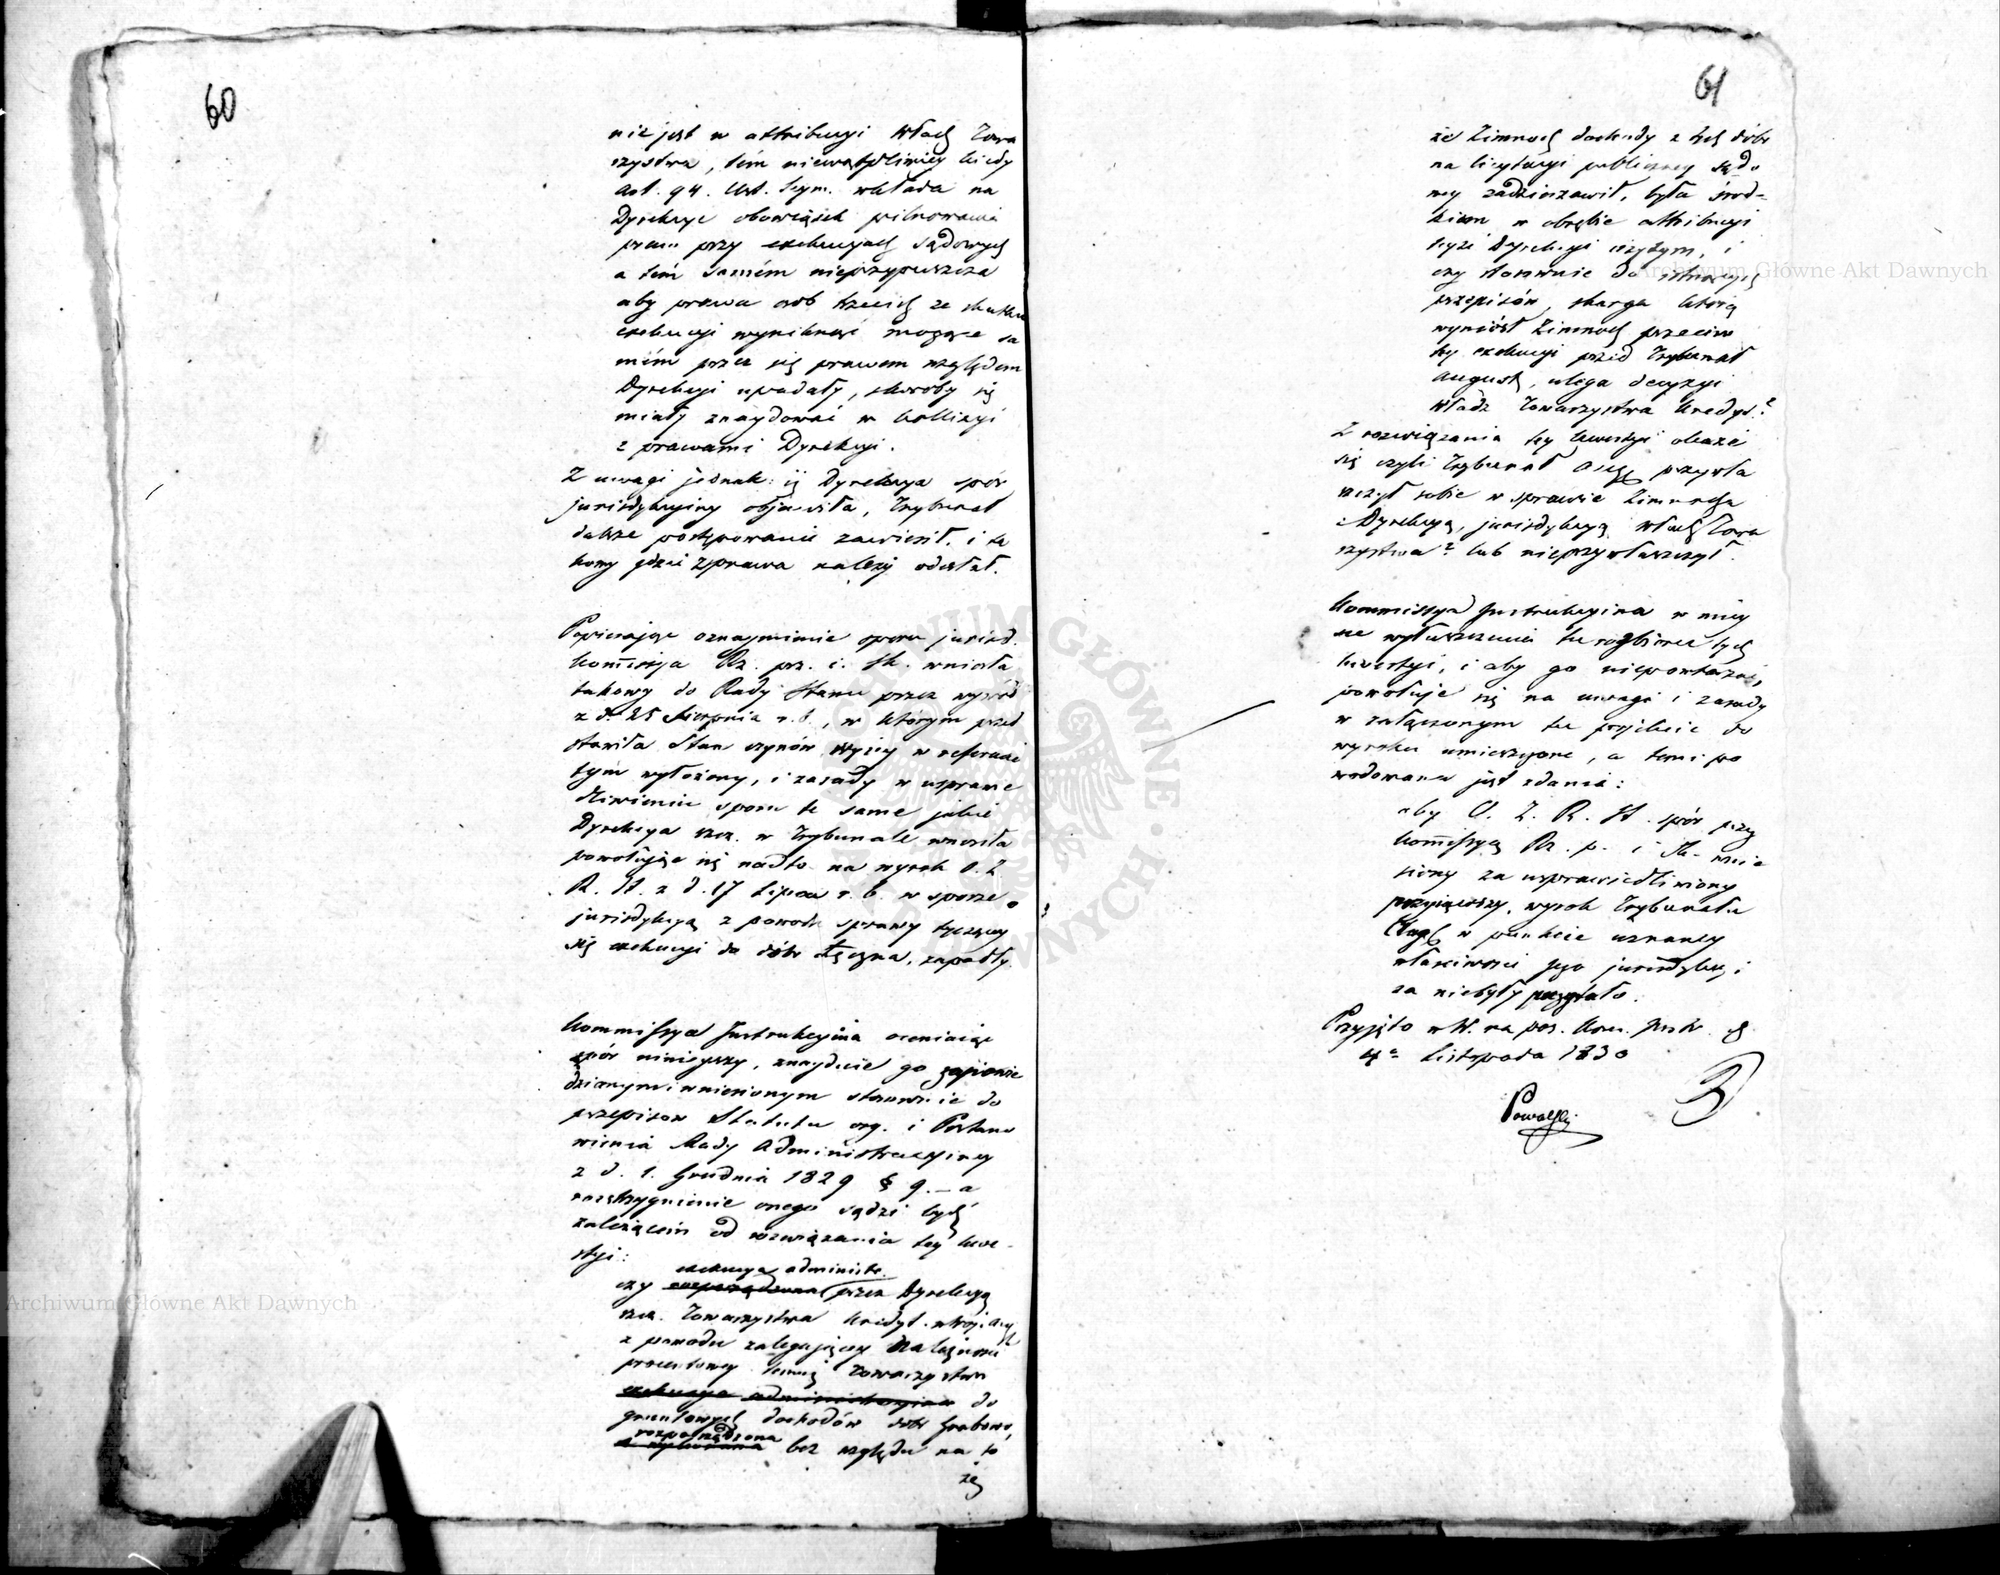 60
nie jest w attribucyi Władz Towa
rzystwa, tém niewątpliwiey kiedy
art. 94. Ust. Seym. wkłada na
Dyrekcye obowiązek pilnowania
praw przy exekucyach sądowych
a tém samém nieprzypuszcza
aby prawa osób trzecich ze skutku
exekucyi wyniknąć mogące sa
mém przez się prawem względem
Dyrekcyi upadały, skoroby się
miały znaydować w kollizyi
z prawami Dyrekcyi.
Z uwagi jednak: iż Dyrekcya spór
jurisdykcyiny objawiła, Trybunał
dalsze postępowanie zawiesił, i ta
kowy gdzie z prawa należy odesłał.
Popierając oznaymienie sporu jurisd.
Kommissya Rz. prz. i. Sk. wniosła
takowy do Rady Stanu przez wywód
z d. 25 Sierpnia r. b., w którym przed
stawiła Stan czynów wyżey w referacie
tym wyłożony, i zasady w usprawie
dliwieniu sporu te same jakie
Dyrekcya szcz. w Trybunale wniosła
powołując się nadto na wyrok O. Z.
R. St. z d. 17 Lipca r. b. w sporze o
jurisdykcyą z powodu sprawy tyczącey
się exekucyi do dóbr Łęczna, zapadły.
Kommissya Instrukcyina oceniając
spór ninieyszy, znayduie go zapowie
dzianym i wniesionym stosownie do
przepisów Statutu org. i Postano
wienia Rady Administracyiney
z d. 1. Grudnia 1829 § 9. — a
rozstrzygnienie onego sądzi bydź
zależącém od rozwiązania tey kwe-
styi:
exekucya administr.
czy rozporządzona przez Dyrekcyą
szcz. Towarzystwa Kredyt. Wojew. Aug
z powodu zalegającey należności
procentowey temuż Towarzystwu
exekucya administracyina do
gruntowych dochodów dóbr Grabowo,
rozporządzona
bez względu na to
że
61
że Zimnoch dochody z tych dóbr
na licytacyi publiczney sądo
wey zadzierżawił, była środ=
kiem w obrębie attribucyi
teyże Dyrekcyi użytym, i
czy stosownie do istniejących
przepisów, skarga którą
wyniósł Zimnoch przeciw
tey exekucyi przed Trybunał
August, ulega decyzyi
Władz Towarzystwa Kredyt.?
Z rozwiązania tey kwestyi okaże
się czyli Trybunał Aug. przywła
szczył sobie w sprawie Zimnocha
z Dyrekcyą, jurisdykcyą Władz Towa
rzystwa? lub nieprzywłaszczył.
Kommissya Instrukcyina w miey
sce wyłuszczenia tu rozbioru tych
kwestyi, i aby go niepowtarzać,
powołuje się na uwagi i zasady
w załączonym tu projekcie do
wyroku umieszczone, a temi po
wodowana jest zdania:
aby O. Z. R. St. spór przez
Kommissyą Rz. p. i Sk. wnie
siony za usprawiedliwiony
przyjąwszy, wyrok Trybunału
Aug. w punkcie uznaney
właściwości jego jurisdykcyi
za niebyły poczytało.
Przyjęto na pos. Kom. Instr. d.
4º Listopada 1830
Powalski